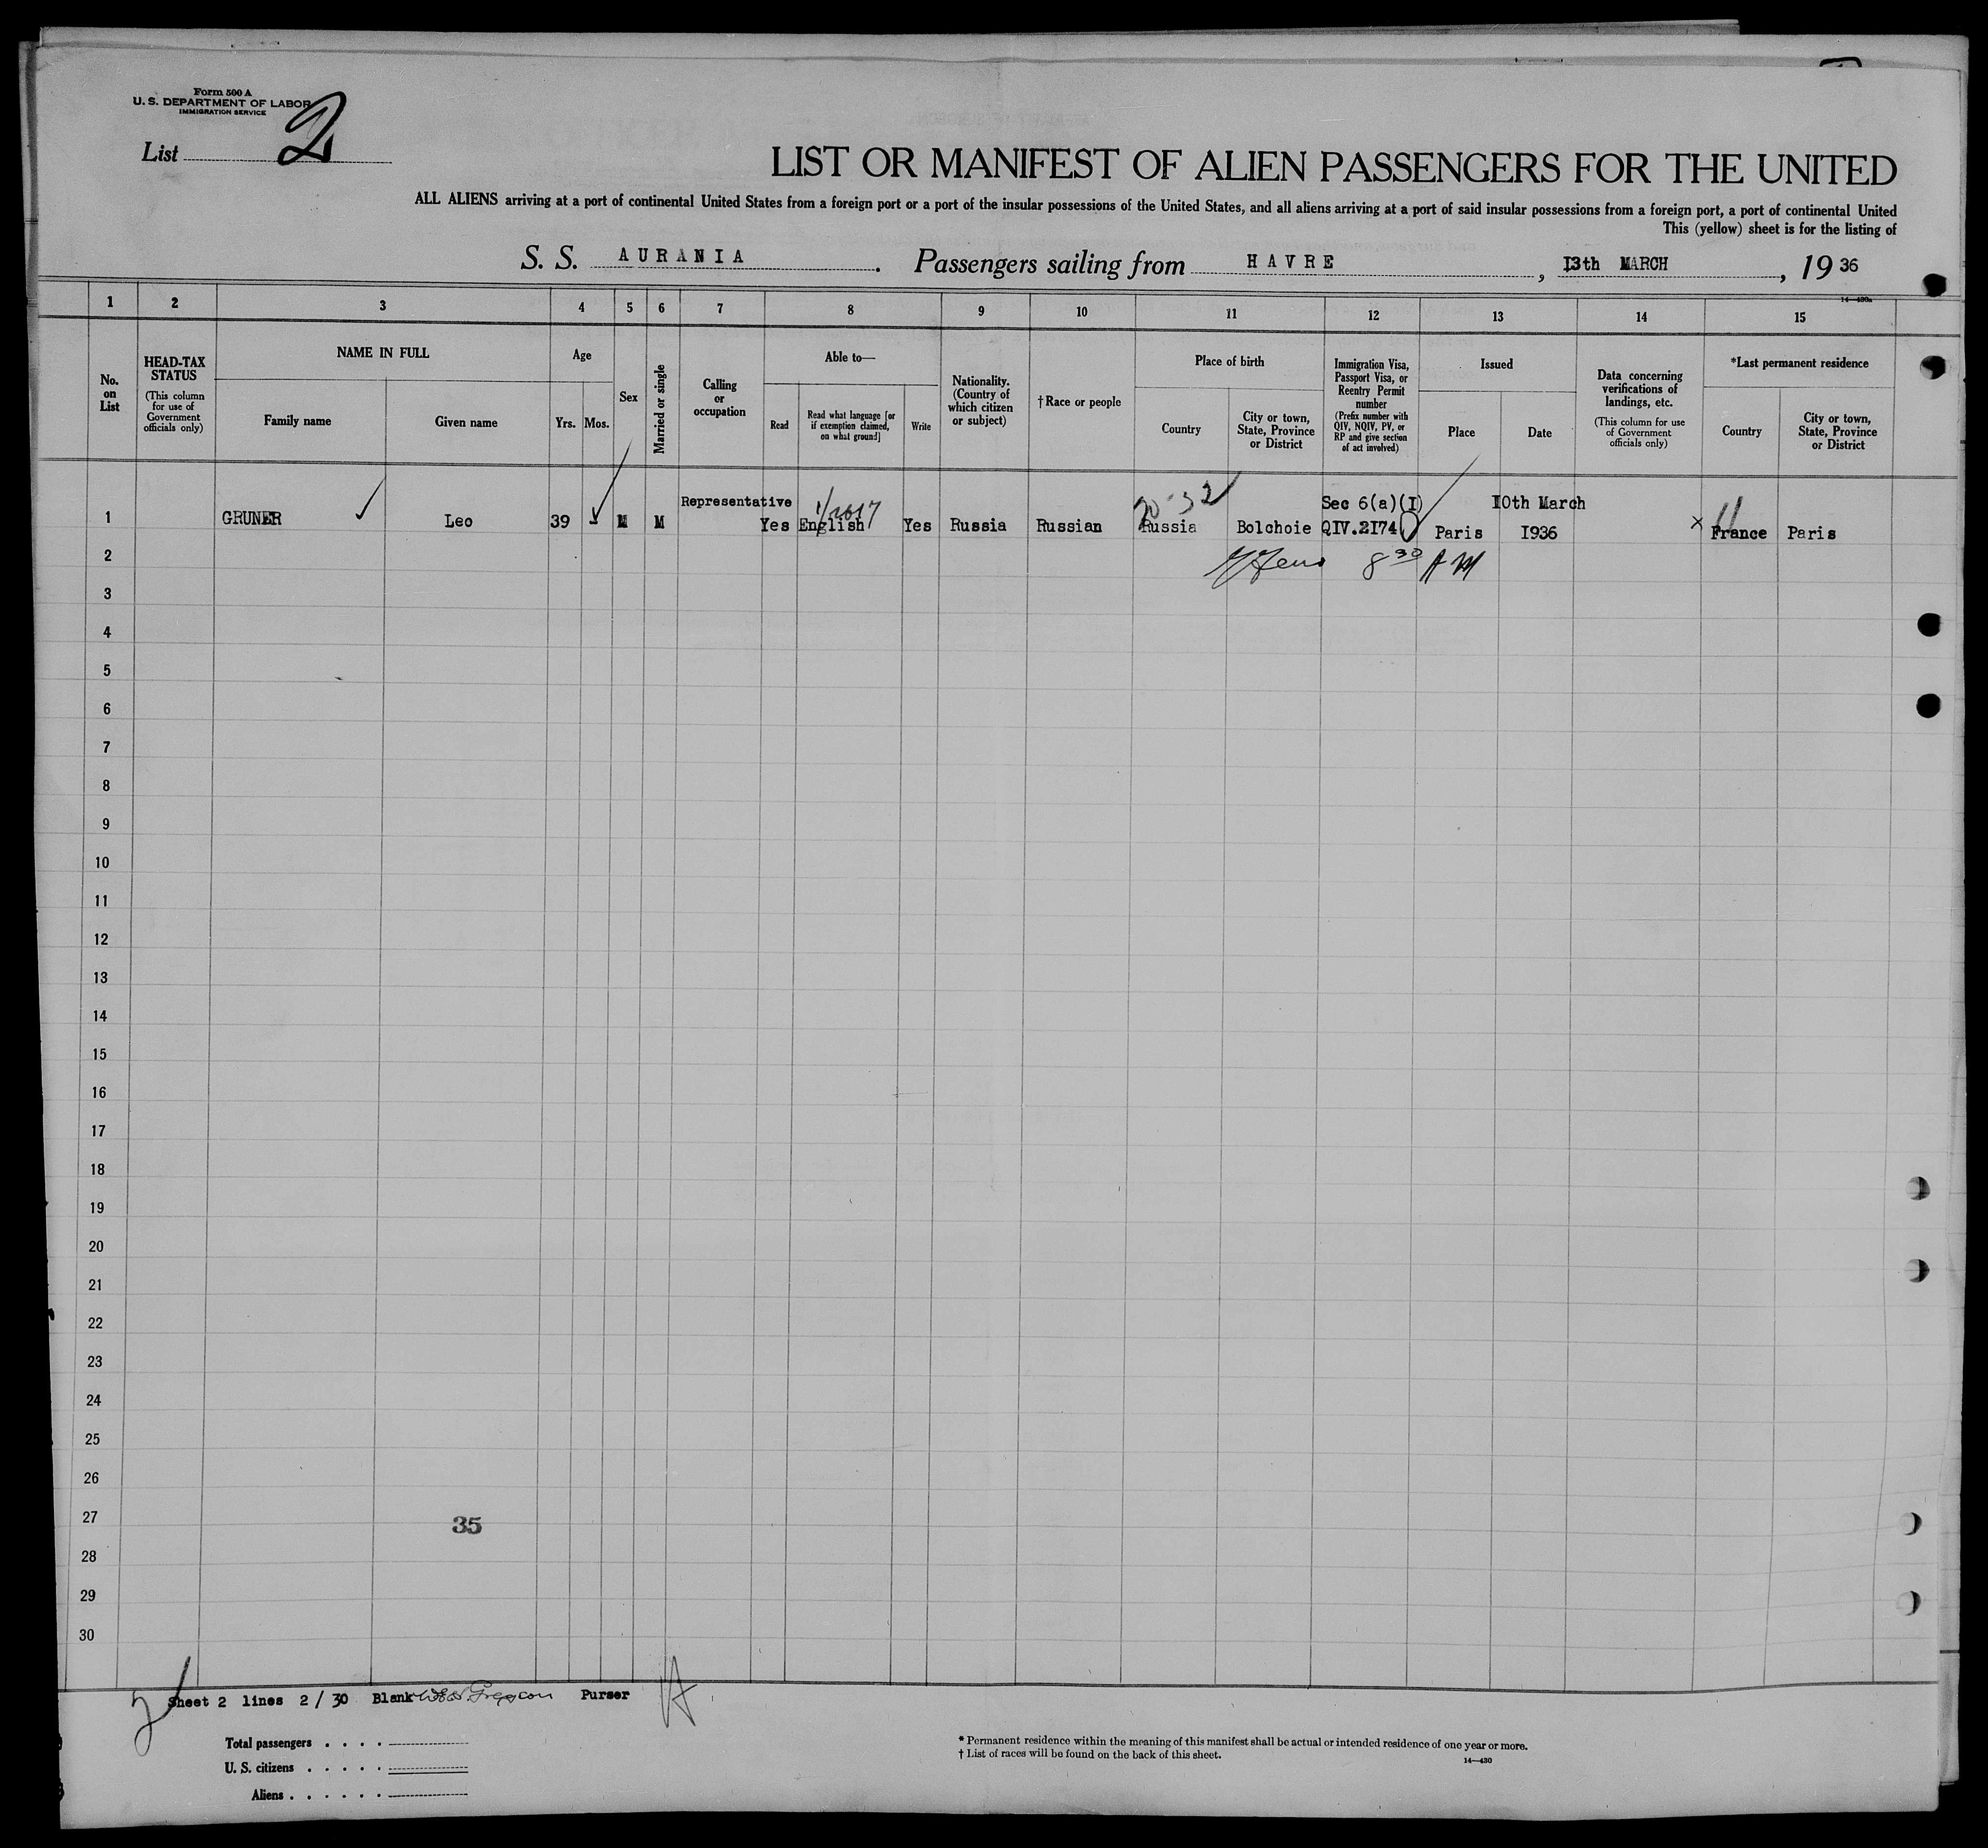 Form 500 A
U. S. DEPARTMENT OF LABOR
IMMIGRATION SERVICE
List 2
LIST OR MANIFEST OF ALIEN PASSENGERS FOR THE UNITED
ALL ALIENS arriving at a port of continental United States from a foreign port or a port of the insular possessions of the United States, and all aliens arriving at a port of said insular possessions from a foreign port, a port of continental United
This (yellow) sheet is for the listing of
S. S. AURANIA. Passengers sailing from HAVRE, 13th MARCH, 19 36
14—430a
1 2 3 4 5 6 7 8 9 10 11 12 13 14 15
No. on List
HEAD-TAX STATUS
(This column for use of Government officials only)
NAME IN FULL
Family name
Given name
Age
Yrs.
Mos.
Sex
Married or single
Calling or occupation
Able to—
Read
Read what language [or if exemption claimed, on what ground]
Write
Nationality. (Country of which citizen or subject)
†Race or people
Place of birth
Country
City or town, State, Province or District
Immigration Visa, Passport Visa, or Reentry Permit number
(Prefix number with QIV, NQIV, PV, or RP and give section of act involved)
Issued
Place
Date
Data concerning verifications of landings, etc.
(This column for use of Government officials only)
*Last permanent residence
Country
City or town, State, Province or District
Representative Sec 6(a)(I) I0th March
1 GRUNER Leo 39 - M M Yes English Yes Russia Russian Russia Bolchoie QIV.2I74 Paris I936 x France Paris
8 30 AM
2
3
4
5
6
7
8
9
10
11
12
13
14
15
16
17
18
19
20
21
22
23
24
25
26
27
35
28
29
30
Sheet 2 lines 2/30 Blank Purser
Total passengers . . . .
U. S. citizens . . . . .
Aliens . . . . . .
* Permanent residence within the meaning of this manifest shall be actual or intended residence of one year or more.
† List of races will be found on the back of this sheet.
14—430